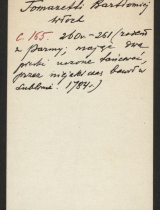 Tomaselli Bartłomiej
Włoch
C. 165. 260v-261 (rodem
z Parmy, mając dwa
pieski uczone tańcować,
przez niejaki czas bawił w
Lublinie. 1784 r.)